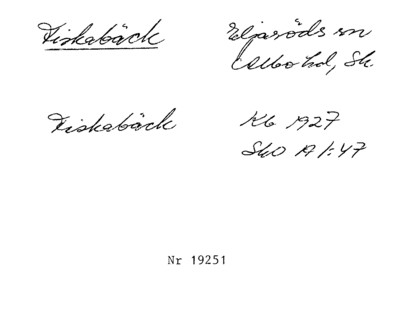 Fiskabäck Eljaröds sn
Albo hd, Sk.
Fiskabäck Kb 1927
SkO A 1:47
Nr 19251